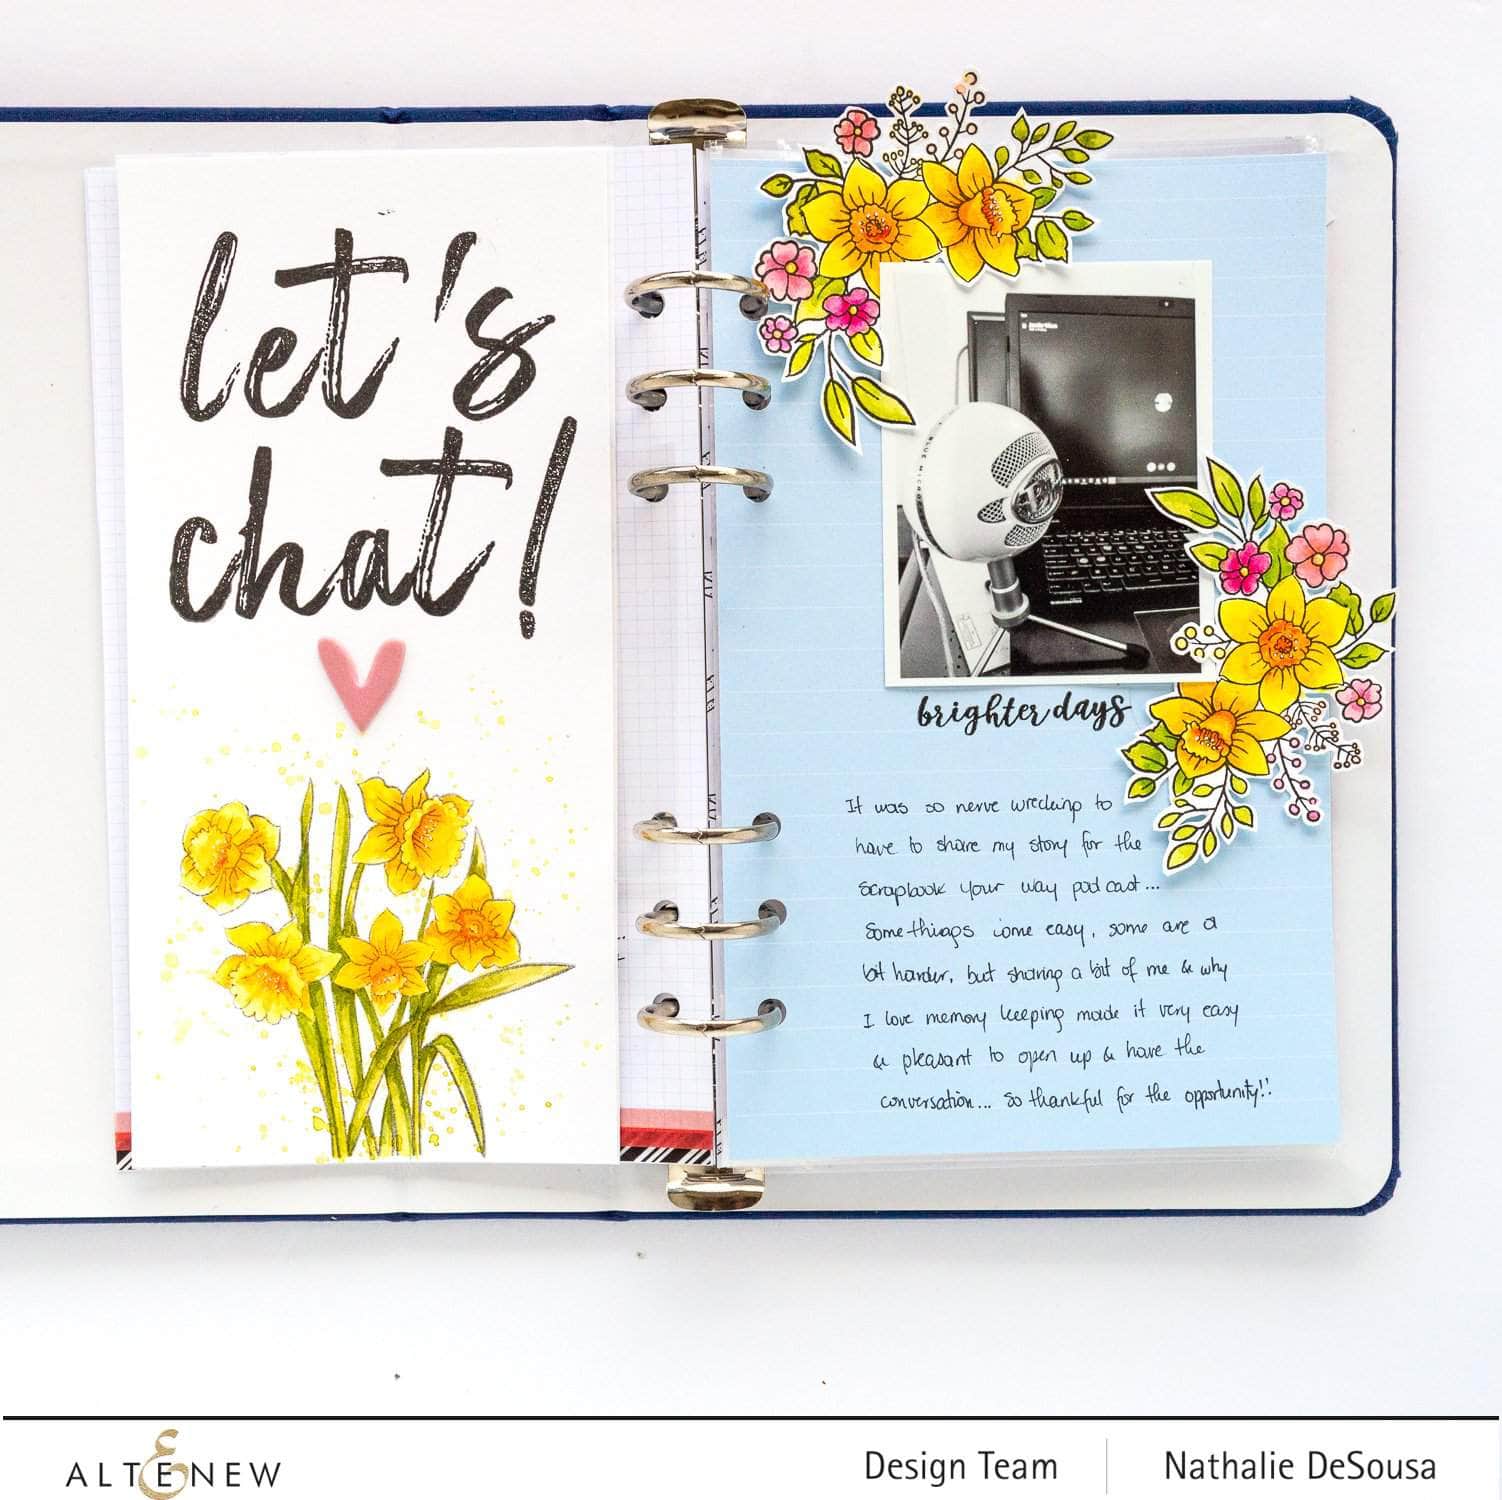 let's
chat!
BLUE MICRO
brighter days
It was so nerve wrecking to
have to share my story for the
Scrapbook your way podcast...
Somethings come easy, some are a
bit harder, but sharing a bit of me & why
I love memory keeping made it very easy
& pleasant to open up & have the
conversation... So thankful for the opportunity!!
ALTENEW
Design Team
Nathalie DeSousa